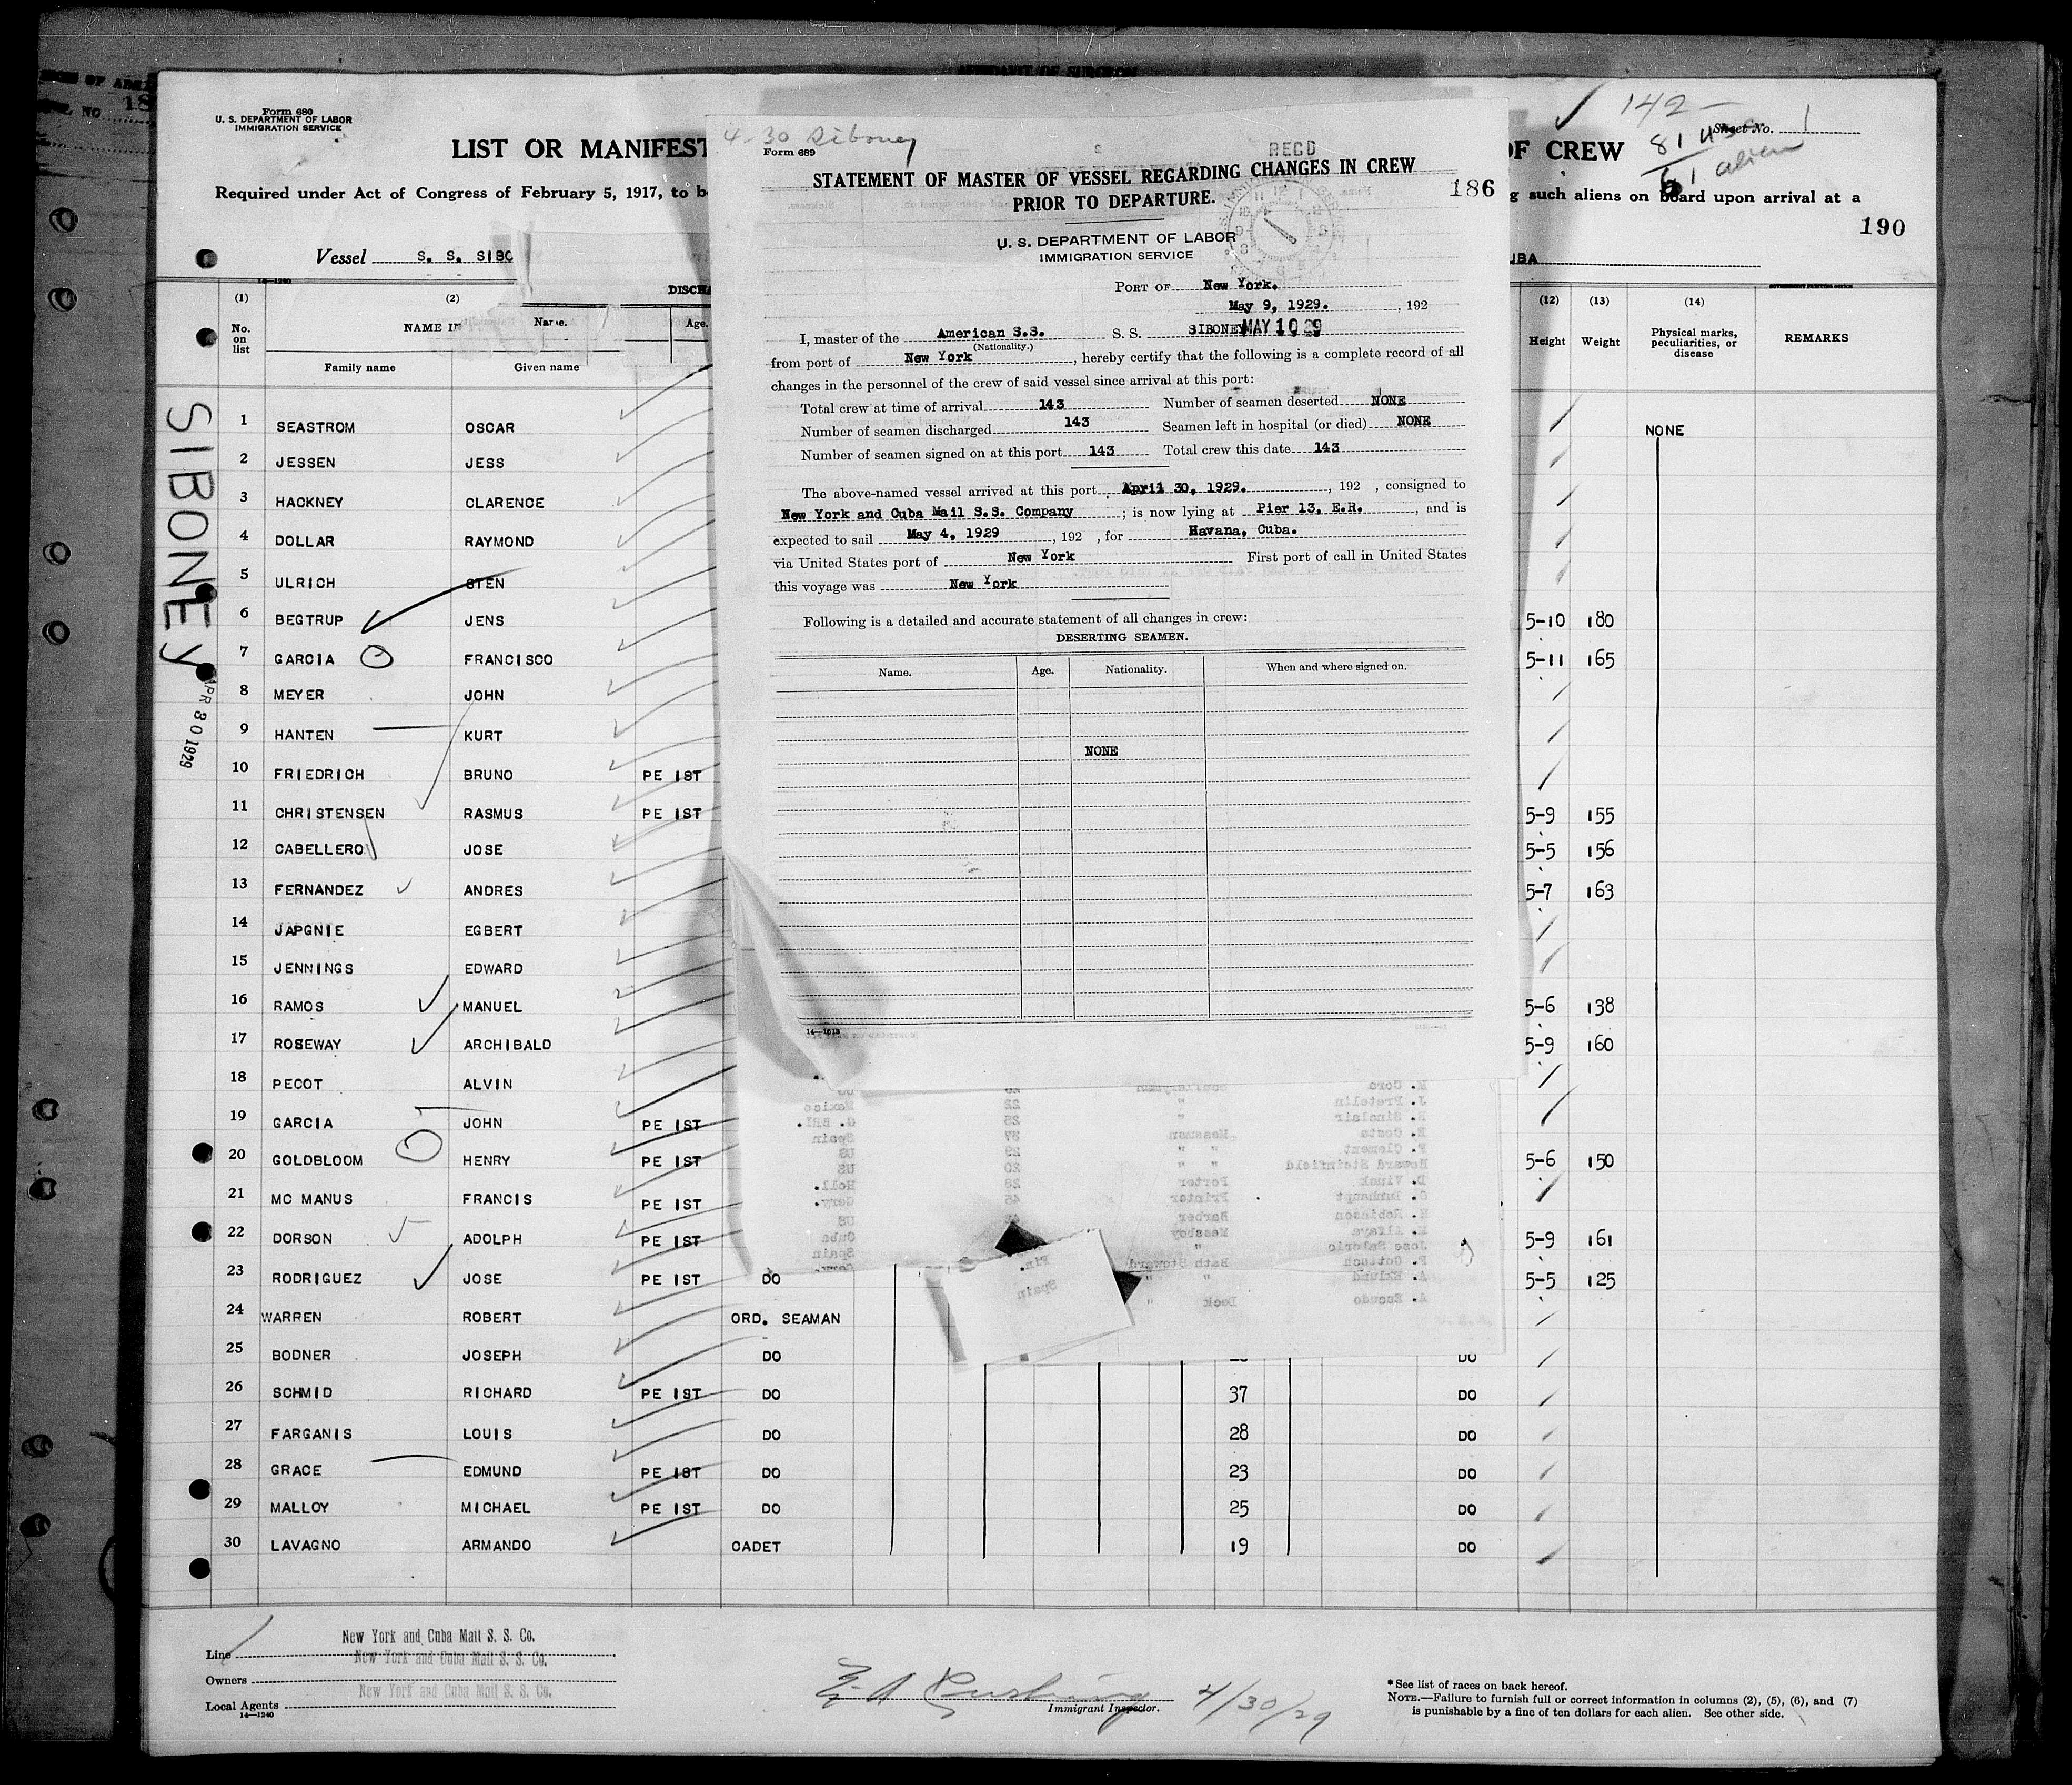 Form 680
U. S. DEPARTMENT OF LABOR
IMMIGRATION SERVICE
LIST OR MANIFEST
OF CREW
142 –
81
alien
Sheet No. 1
Required under Act of Congress of February 5, 1917, to b
such aliens on board upon arrival at a
190
Vessel S. S. SIBO
UBA
14—1240
(1) (2) (12) (13) (14)
No. on list
NAME IN
Family name Given name
Name.
Age.
Height Weight
Physical marks, peculiarities, or disease
REMARKS
SIBONEY
1 SEASTROM OSCAR NONE
2 JESSEN JESS
3 HACKNEY CLARENCE
4 DOLLAR RAYMOND
5 ULRICH STEN
6 BEGTRUP JENS 5-10 180
7 GARCIA FRANCISCO 5-11 165
8 MEYER JOHN
9 HANTEN KURT
10 FRIEDRICH BRUNO PE IST
11 CHRISTENSEN RASMUS PE IST 5-9 155
12 CABELLERO JOSE 5-5 156
13 FERNANDEZ ANDRES 5-7 163
14 JAPGNIE EGBERT
15 JENNINGS EDWARD
16 RAMOS MANUEL 5-6 138
17 ROSEWAY ARCHIBALD 5-9 160
18 PECOT ALVIN
19 GARCIA JOHN PE IST
20 GOLDBLOOM HENRY PE IST 5-6 150
21 MC MANUS FRANCIS PE IST
22 DORSON ADOLPH PE IST 5-9 161
23 RODRIGUEZ JOSE PE IST DO 5-5 125
24 WARREN ROBERT ORD. SEAMAN
25 BODNER JOSEPH DO DO
26 SCHMID RICHARD PE IST DO 37 DO
27 FARGANIS LOUIS DO 28 DO
28 GRACE EDMUND PE IST DO 23 DO
29 MALLOY MICHAEL PE IST DO 25 DO
30 LAVAGNO ARMANDO CADET 19 DO
4-30 Siboney
Form 689
RECD
STATEMENT OF MASTER OF VESSEL REGARDING CHANGES IN CREW
PRIOR TO DEPARTURE.
186
U. S. DEPARTMENT OF LABOR
IMMIGRATION SERVICE
PORT OF New York.
May 9, 1929. , 192
I, master of the American S.S. S. S. SIBONEY MAY 10 29
(Nationality.)
from port of New York , hereby certify that the following is a complete record of all
changes in the personnel of the crew of said vessel since arrival at this port:
Total crew at time of arrival 143 Number of seamen deserted NONE
Number of seamen discharged 143 Seamen left in hospital (or died) NONE
Number of seamen signed on at this port 143 Total crew this date 143
The above-named vessel arrived at this port April 30, 1929. , 192 , consigned to
New York and Cuba Mail S.S. Company ; is now lying at Pier 13, E.R. , and is
expected to sail May 4, 1929 , 192 , for Havana, Cuba.
via United States port of New York First port of call in United States
this voyage was New York
Following is a detailed and accurate statement of all changes in crew:
DESERTING SEAMEN.
Name. Age. Nationality. When and where signed on.
NONE
14—1513
Line New York and Cuba Mail S. S. Co.
Owners New York and Cuba Mail S. S. Co.
Local Agents New York and Cuba Mail S. S. Co.
14—1240
4/30/29
Immigrant Inspector.
*See list of races on back hereof.
NOTE.—Failure to furnish full or correct information in columns (2), (5), (6), and (7)
is punishable by a fine of ten dollars for each alien. See other side.